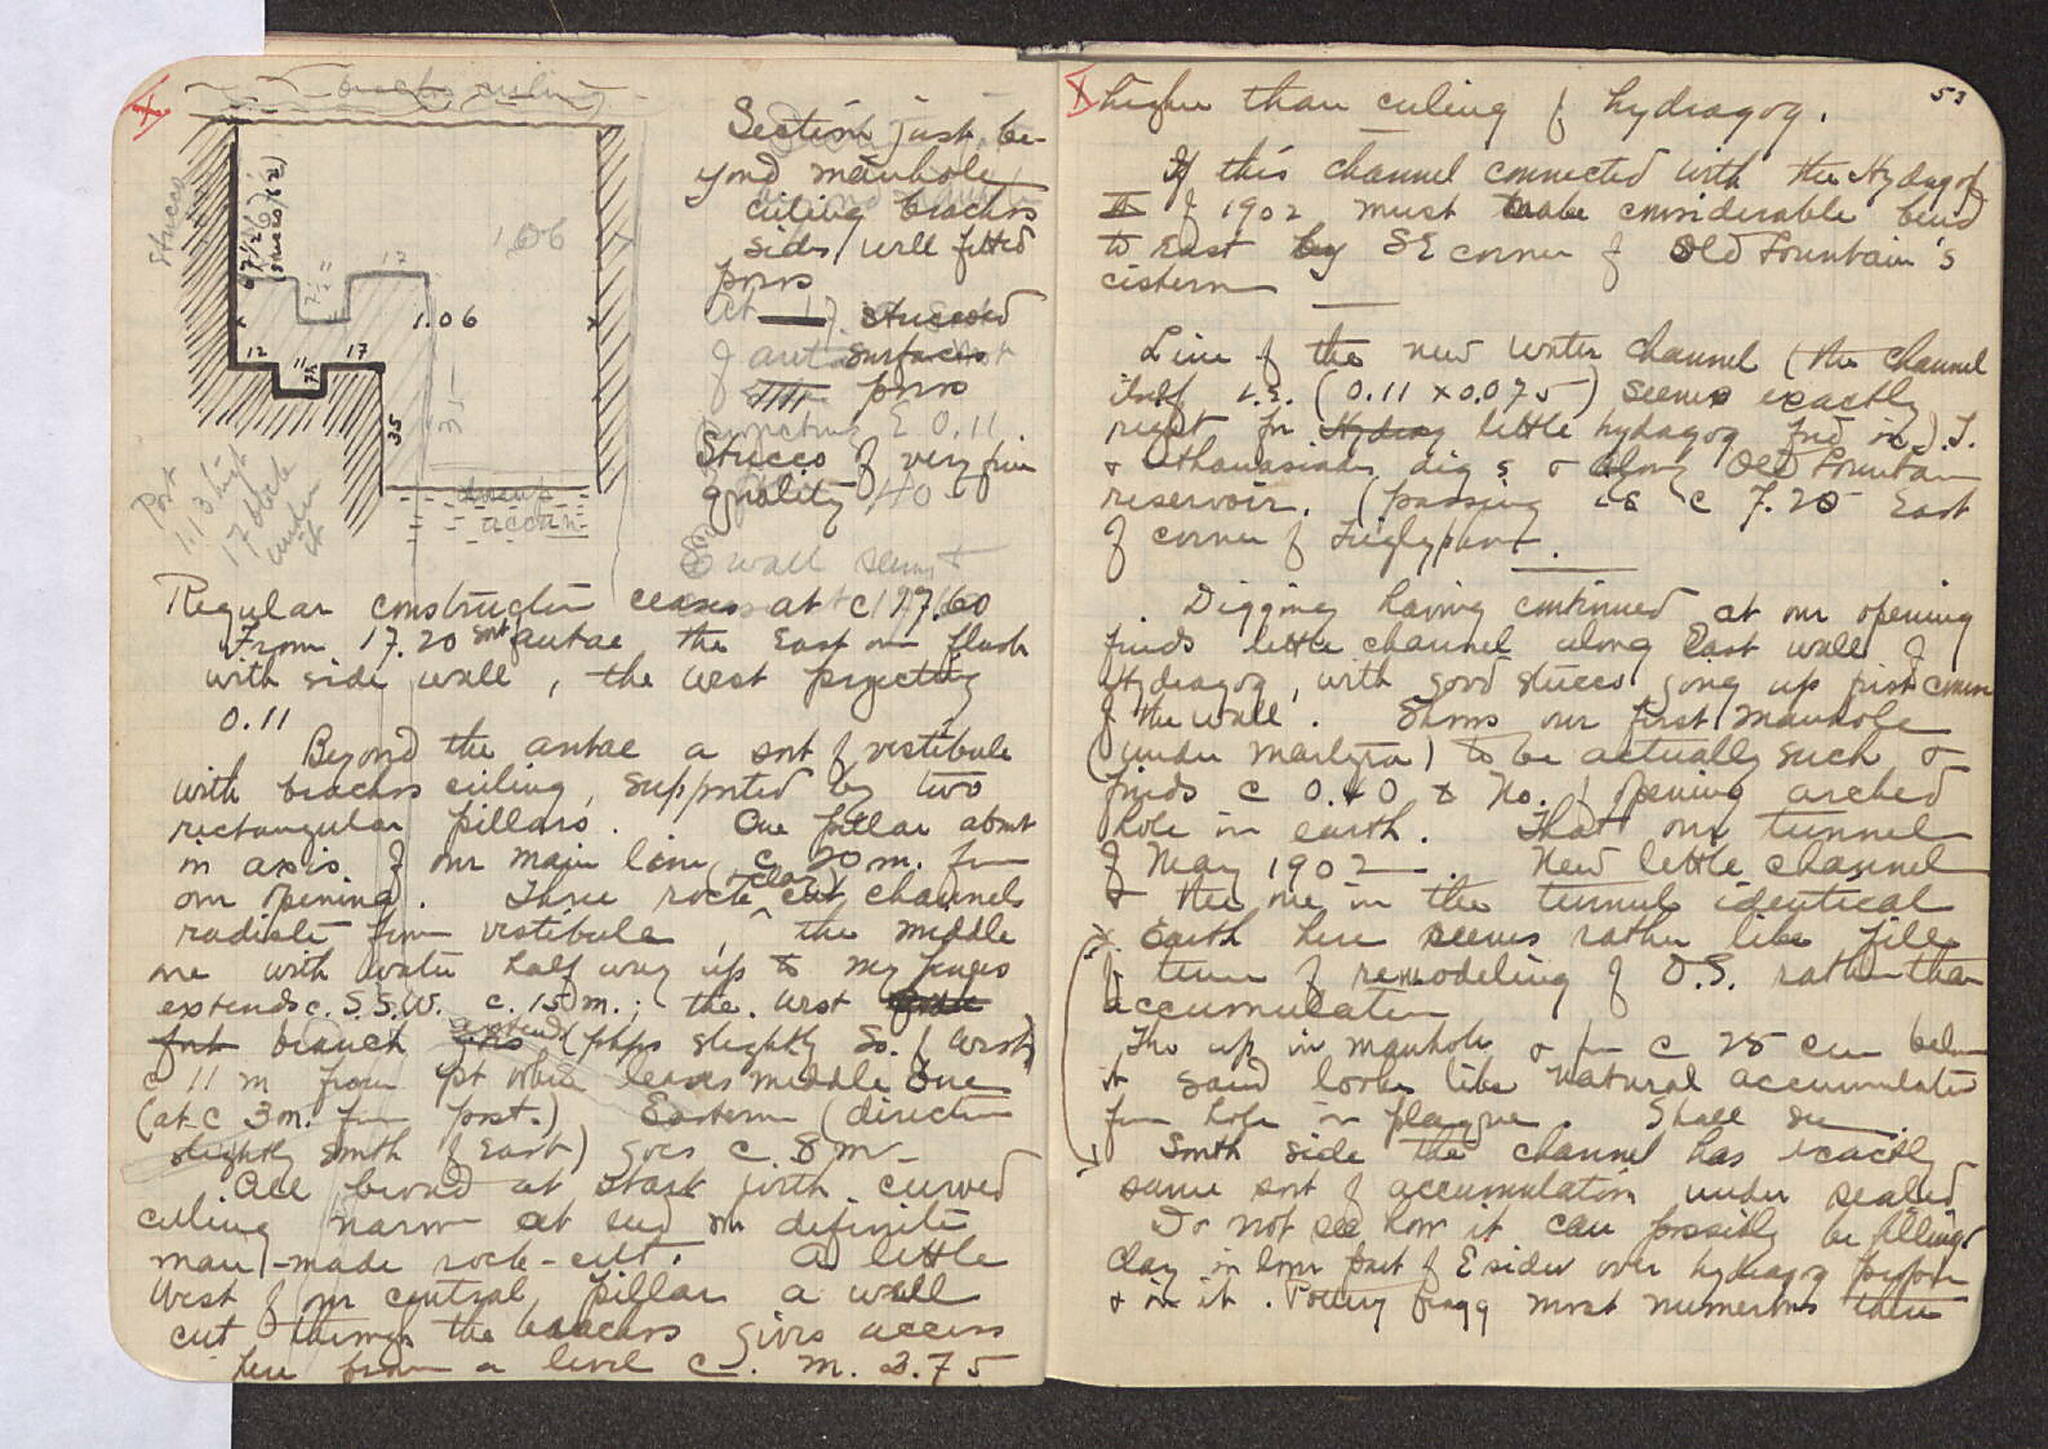 Section just be-
yond manhole
ceiling brachos
sides well fitted
poros
stuccoed
surfaces
poros
Stucco of very fine
quality
Stucco
7½
(stucco)
1.06
17
11
7½
1.06
12 11 17
7½
35
Post
1.13 high
17 block
under
it
E wall seems
Regular construction ceases at c 17.60
From 17.20 sort antae the East one flush
with side wall, the West projecting
0.11
Beyond the antae a sort of vestibule
with brachos ceiling, supported by two
rectangular pillars. One pillar about
in axis of our main line, c 20 m. from
our opening. Three rock (& clay) cut channels
radiate from vestibule, the middle
one with water half way up to my knees
extends c. S.S.W. c. 15 m.; the West
branch extends (phps slightly So. of West)
c 11 m from pt where leaves middle one
(at c 3 m. from post.) Eastern (direction
slightly South of East) goes c. 8 m.
All broad at start with curved
ceiling narrow at end or definite
man-made rock-cut. A little
West of our central pillar a well
cut through the brachos gives access
here from a level c. m. 2.75
53
higher than ceiling of hydragog.
If this channel connected with the Hydragog
of 1902 must make considerable bend
to East by SE corner of Old Fountain's
cistern
Line of the new water channel (the channel
itself i.e. (0.11 x 0.075) seems exactly
right for little hydragog fnd in J.
& Athanasiades digs & along Old Fountain
reservoir. (passing c 7.20 East
of corner of Triglyphon.
Digging having continued at our opening
finds little channel along East wall of
Hydragog, with good stucco going up first course
of the wall. Shows our first manhole
(under martyra) to be actually such &
finds c 0.40 to No. of opening arched
hole in earth. That our tunnel
of May 1902. New little channel
& the one in the tunnel identical
x Earth here seems rather like fill
of time of remodeling of O.S. rather than
accumulation
Tho up in manhole & for c 25 cm below
it sand looks like natural accumulation
from hole in plaque. Shall see.
South side the channel has exactly
same sort of accumulation under sealed
Do not see how it can possibly be filling
Clay in lower part of E side over hydragog proper
& in it. Pottery fragg most numerous there